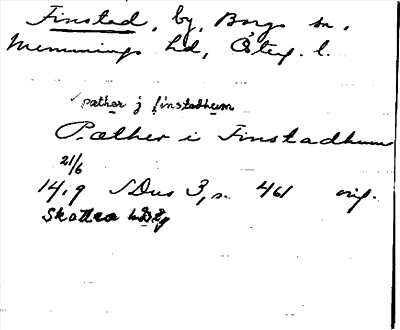 Finstad, by, Borgs sn,
Memmings hd, Österg. l.
pæther j finstadhum
Pæther i Finstadhum
21/6
1419 SDns 3, s. 461 orig.